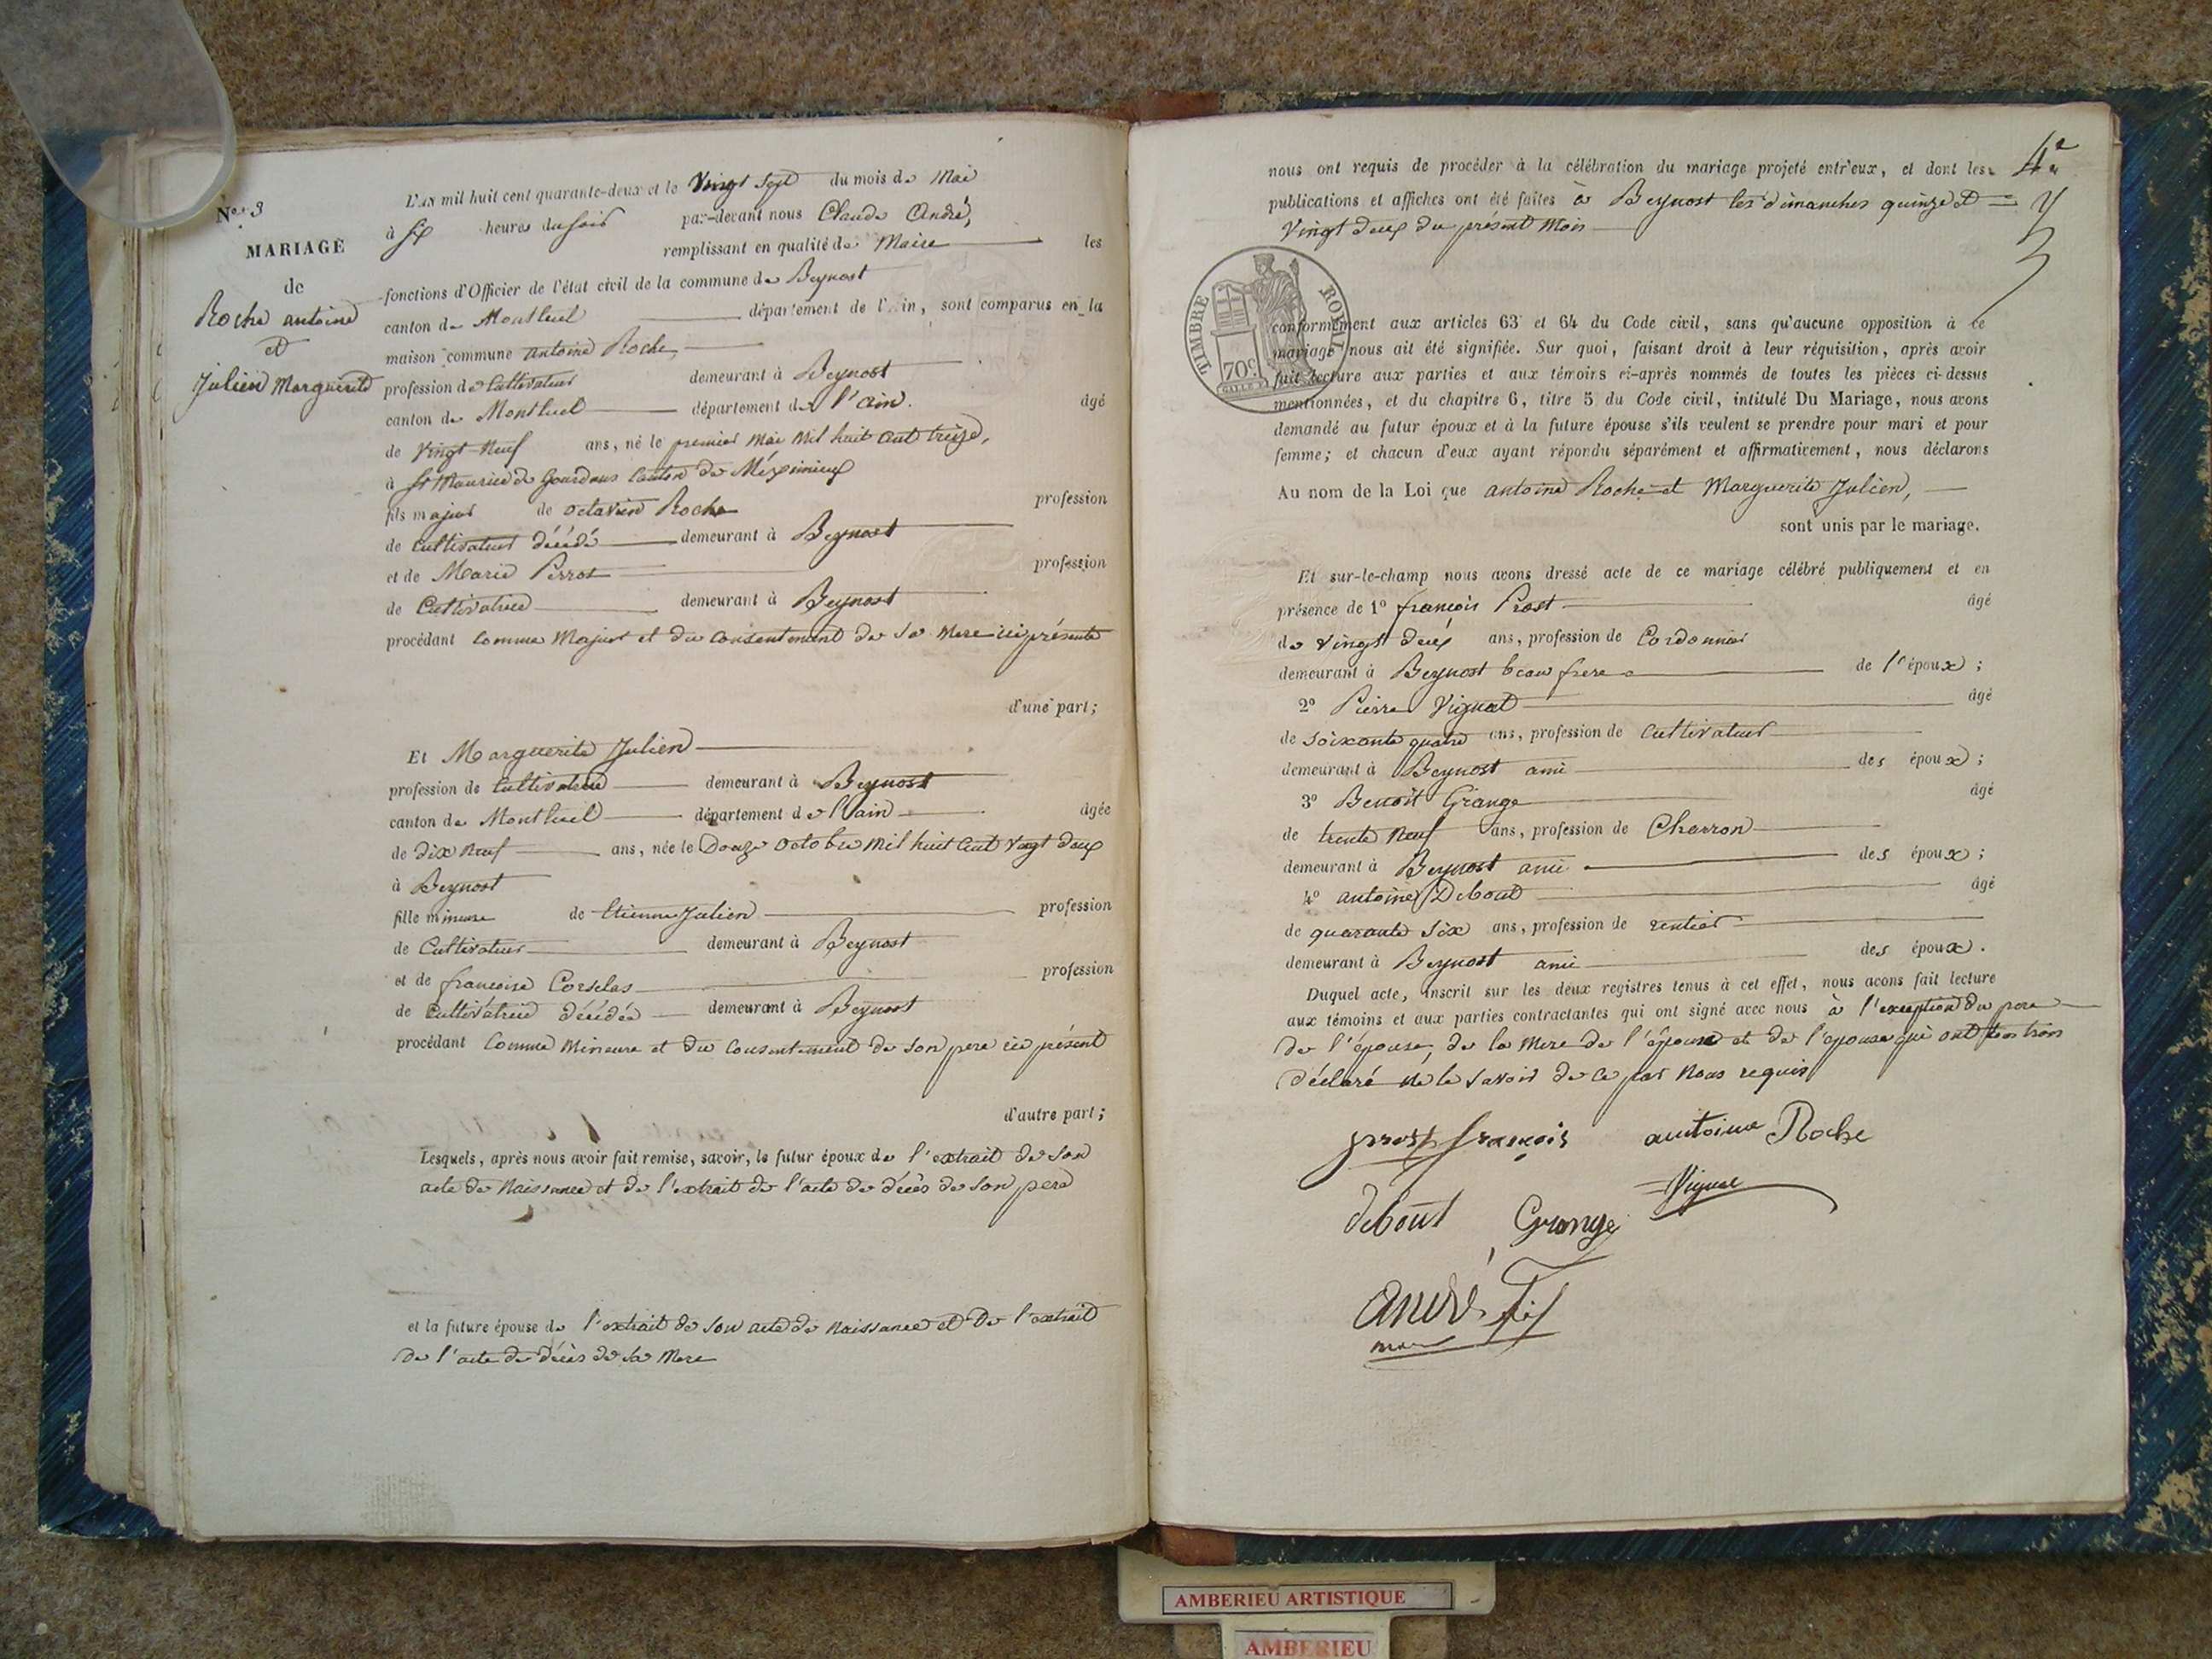 N.º 3
MARIAGE
de
Roche antoine
et
Julien Marguerite
L'AN mil huit cent quarante-deux et le Vingt Sept du mois de Mai
à Six heures du soir par-devant nous Claude André,
remplissant en qualité de Maire les
fonctions d'Officier de l'état civil de la commune de Beynost
canton de Montluel département de l'Ain, sont comparus en la
maison commune antoine Roche,
profession de Cultivateur demeurant à Beynost
canton de Montluel département de l'ain. âgé
de Vingt Neuf ans, né le premier Mai Mil huit Cent treize,
à St Maurice de Gourdans Canton de Méximieux
fils majeur de octavien Roche profession
de Cultivateur décédé demeurant à Beynost
et de Marie Perrot profession
de Cultivatrice demeurant à Beynost
procédant Comme Majeur et du Consentement de Sa Mere ici présente
d'une part;
Et Marguerite Julien
profession de Cultivatrice demeurant à Beynost
canton de Montluel département de l'ain âgée
de dix Neuf ans, née le Douze octobre Mil huit Cent Vingt deux
à Beynost
fille mineure de Etienne Julien profession
de Cultivateur demeurant à Beynost
et de francoise Corselas profession
de Cultivatrice décédée demeurant à Beynost
procédant Comme Mineure et du Consentement de Son pere ici présent
d'autre part;
Lesquels, après nous avoir fait remise, savoir, le futur époux de l'extrait de Son
acte de Naissance et de l'extrait de l'acte de décès de Son pere
et la future épouse de l'extrait de Son acte de Naissance et De l'extrait
De l'acte de décès de Sa Mere
nous ont requis de procéder à la célébration du mariage projeté entr'eux, et dont les
publications et affiches ont été faites à Beynost les dimanches quinze et
Vingt deux du présent Mois
TIMBRE ROYAL
70c
conformément aux articles 63 et 64 du Code civil, sans qu'aucune opposition à ce
mariage nous ait été signifiée. Sur quoi, faisant droit à leur réquisition, après avoir
fait lecture aux parties et aux témoins ci-après nommés de toutes les pièces ci-dessus
mentionnées, et du chapitre 6, titre 5 du Code civil, intitulé Du Mariage, nous avons
demandé au futur époux et à la future épouse s'ils veulent se prendre pour mari et pour
femme; et chacun d'eux ayant répondu séparément et affirmativement, nous déclarons
Au nom de la Loi que antoine Roche et Marguerite Julien,
sont unis par le mariage.
Et sur-le-champ nous avons dressé acte de ce mariage célébré publiquement et en
présence de 1º françois Prost âgé
de Vingt deux ans, profession de Cordonnier
demeurant à Beynost beau frere de l'époux;
2º Pierre Vignat âgé
de Soixante quatre ans, profession de Cultivateur
demeurant à Beynost ami des époux;
3º Benoît Grange âgé
de trente Neuf ans, profession de Charron
demeurant à Beynost ami des époux;
4º antoine Debout âgé
de quarante Six ans, profession de rentier
demeurant à Beynost ami des époux.
Duquel acte, inscrit sur les deux registres tenus à cet effet, nous avons fait lecture
aux témoins et aux parties contractantes qui ont signé avec nous à l'exception du pere
De l'épouse, de la Mere de l'époux et de l'epouse qui ont tous trois
Déclaré ne le Savoir de ce par Nous requis
prost françois antoine Roche
debout Grange Vignat
André Fils
maire
AMBERIEU ARTISTIQUE
AMBERIEU